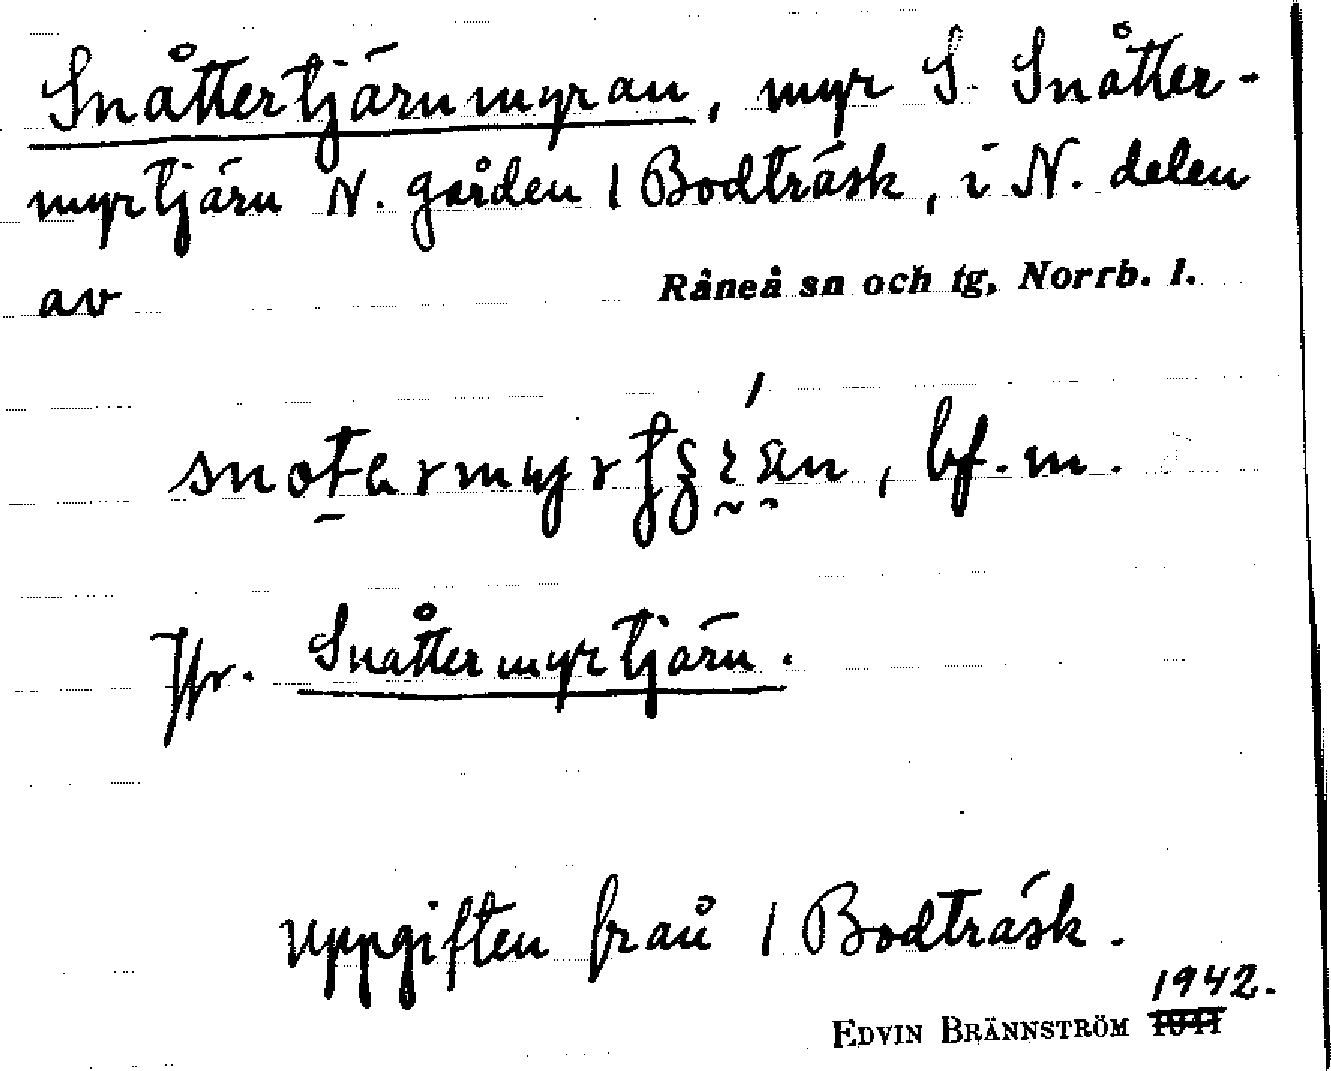 Snåttertjärnmyran, myr S. Snåtter-
myrtjärn N. gården 1 Bodträsk, i N. delen
av Råneå sn och tg, Norrb. l.
bf. m.
Jfr. Snåttermyrtjärn.
Uppgiften från 1 Bodträsk.
1942.
EDVIN BRÄNNSTRÖM 1941